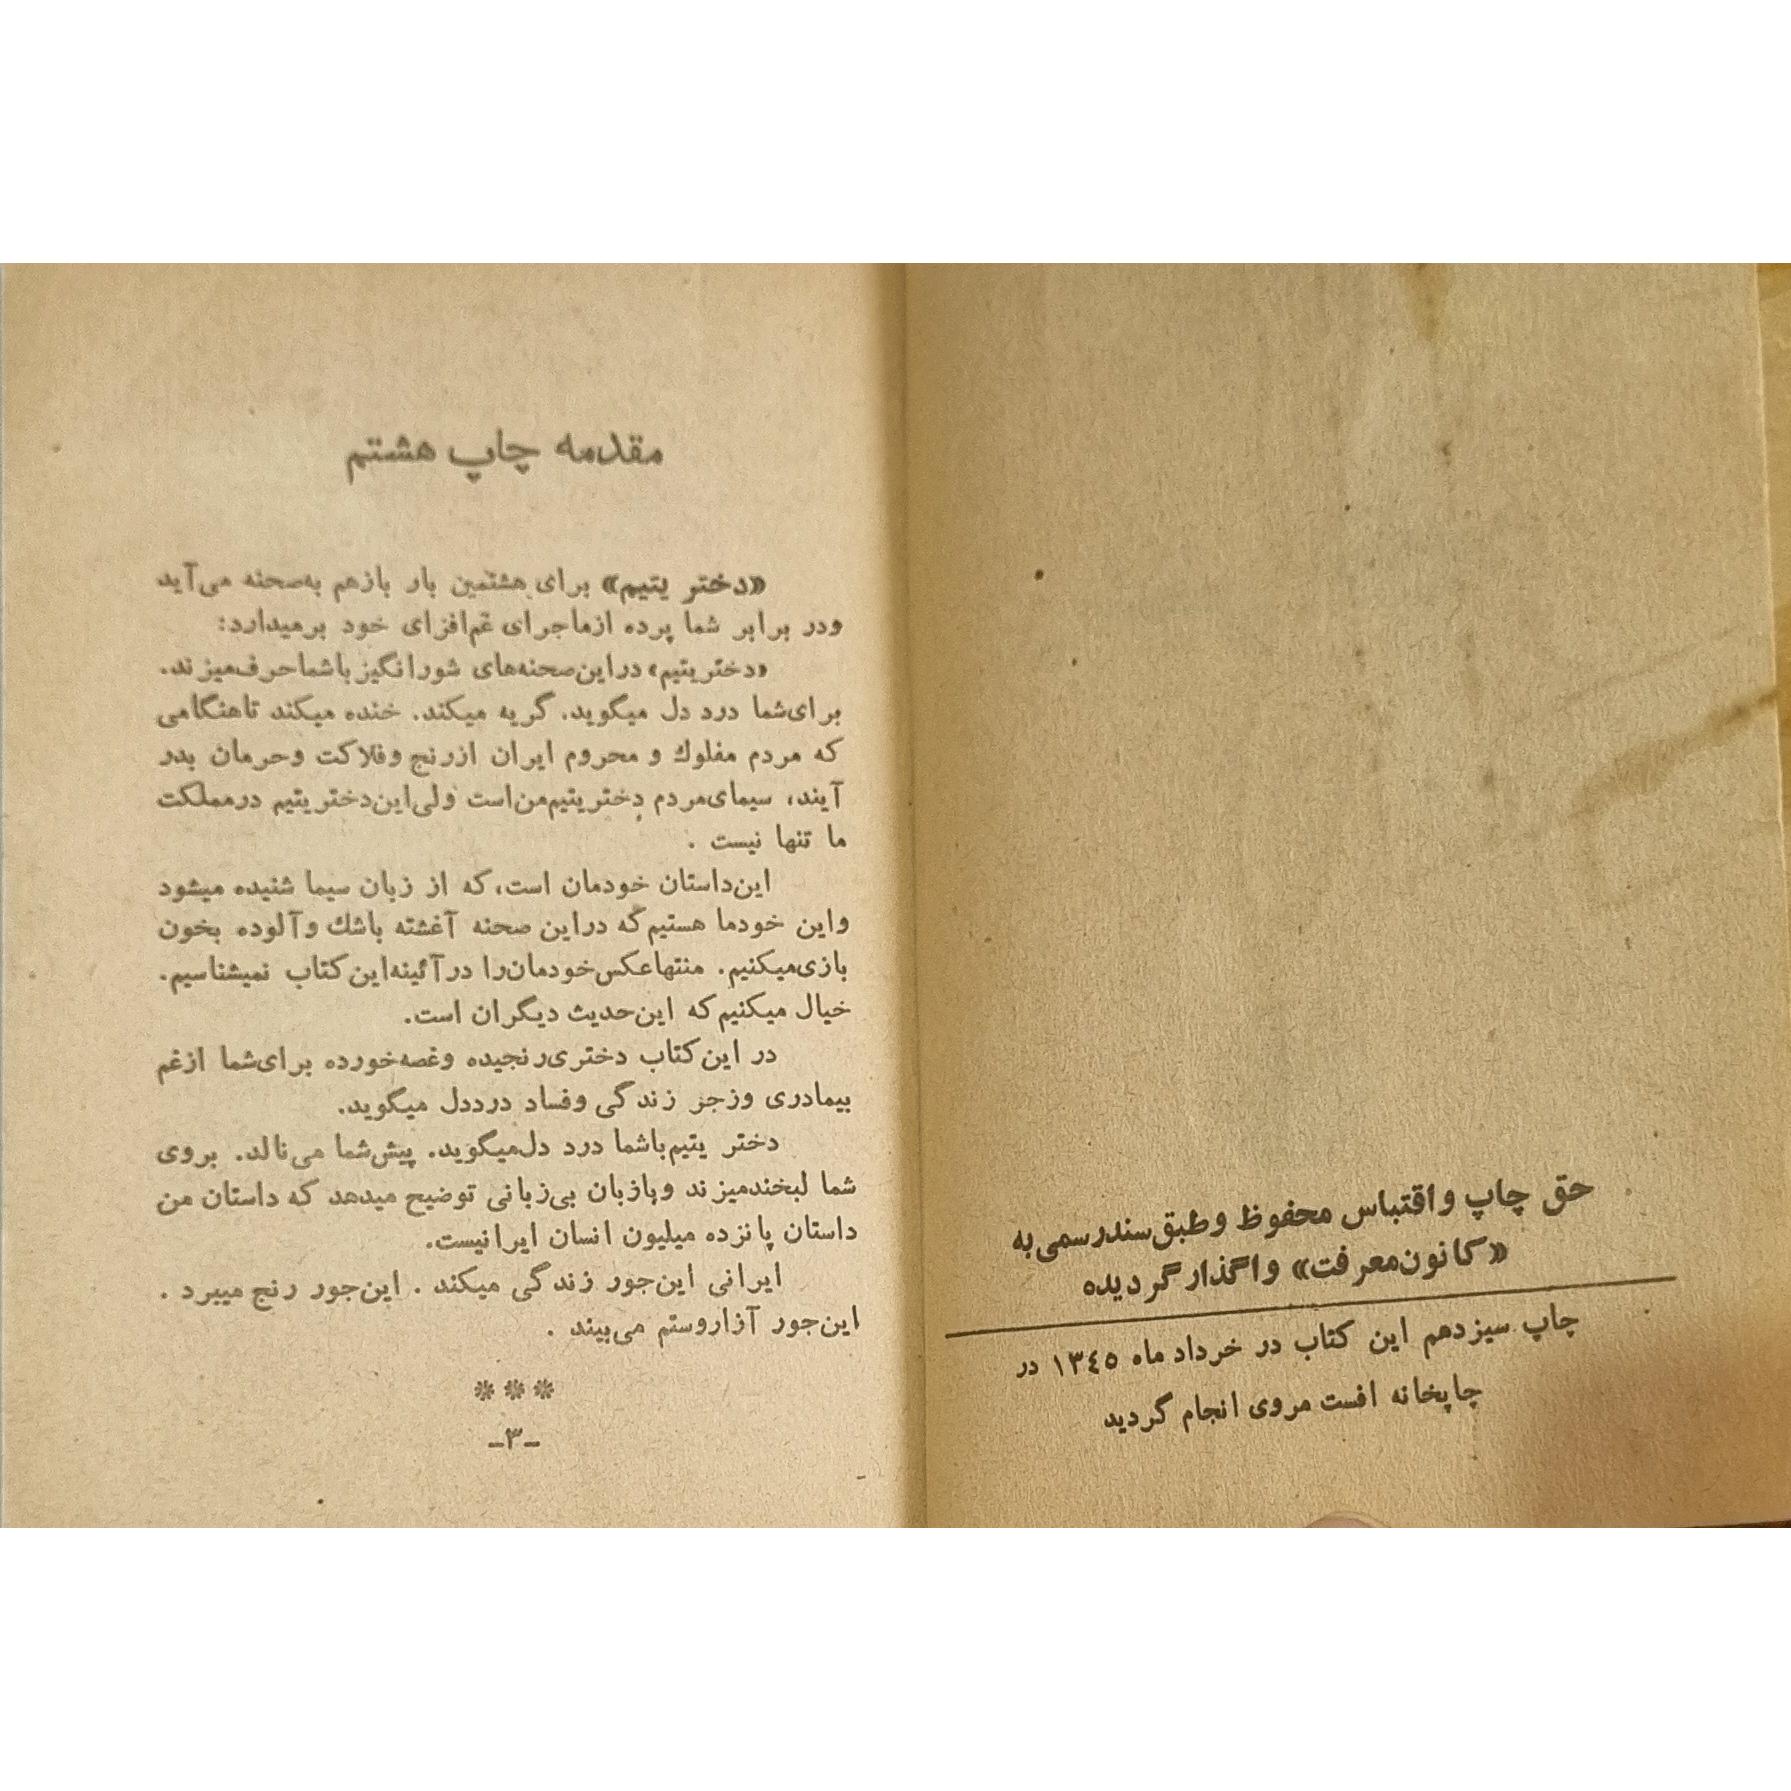 حق چاپ واقتباس محفوظ وطبق سند رسمی به
«کانون معرفت» واگذار گردیده
چاپ سیزدهم این کتاب در خرداد ماه ۱۳٤٥ در
چاپخانه افست مروی انجام گردید
مقدمه چاپ هشتم
«دختر یتیم» برای هشتمین بار بازهم به‌صحنه می‌آید
ودر برابر شما پرده ازماجرای غم‌افزای خود برمیدارد:
«دختر یتیم» دراین‌صحنه‌های شورانگیز باشما حرف‌میزند.
برای‌شما درد دل میگوید. گریه میکند. خنده میکند تاهنگامی
که مردم مفلوك و محروم ایران ازرنج وفلاکت وحرمان بدر
آیند، سیمای‌مردم دختر یتیم‌من‌است ولی‌این‌دختر یتیم درمملکت
ما تنها نیست .
این‌داستان خودمان است، که از زبان سیما شنیده میشود
واین خودما هستیم‌که دراین صحنه آغشته باشك وآلوده بخون
بازی‌میکنیم. منتهاعکس‌خودمان‌را درآئینه‌این‌کتاب نمیشناسیم.
خیال میکنیم‌که این‌حدیث دیگران است.
در این‌کتاب دختری‌رنجیده وغصه‌خورده برای‌شما ازغم
بیمادری وزجر زندگی وفساد درددل میگوید.
دختر یتیم‌باشما درد دل‌میگوید. پیش‌شما می‌نالد. بروی
شما لبخندمیزند وبازبان بی‌زبانی توضیح میدهد که داستان من
داستان پانزده میلیون انسان ایرانیست.
ایرانی این‌جور زندگی میکند . این‌جور رنج میبرد .
این‌جور آزاروستم می‌بیند .
***
-۳-